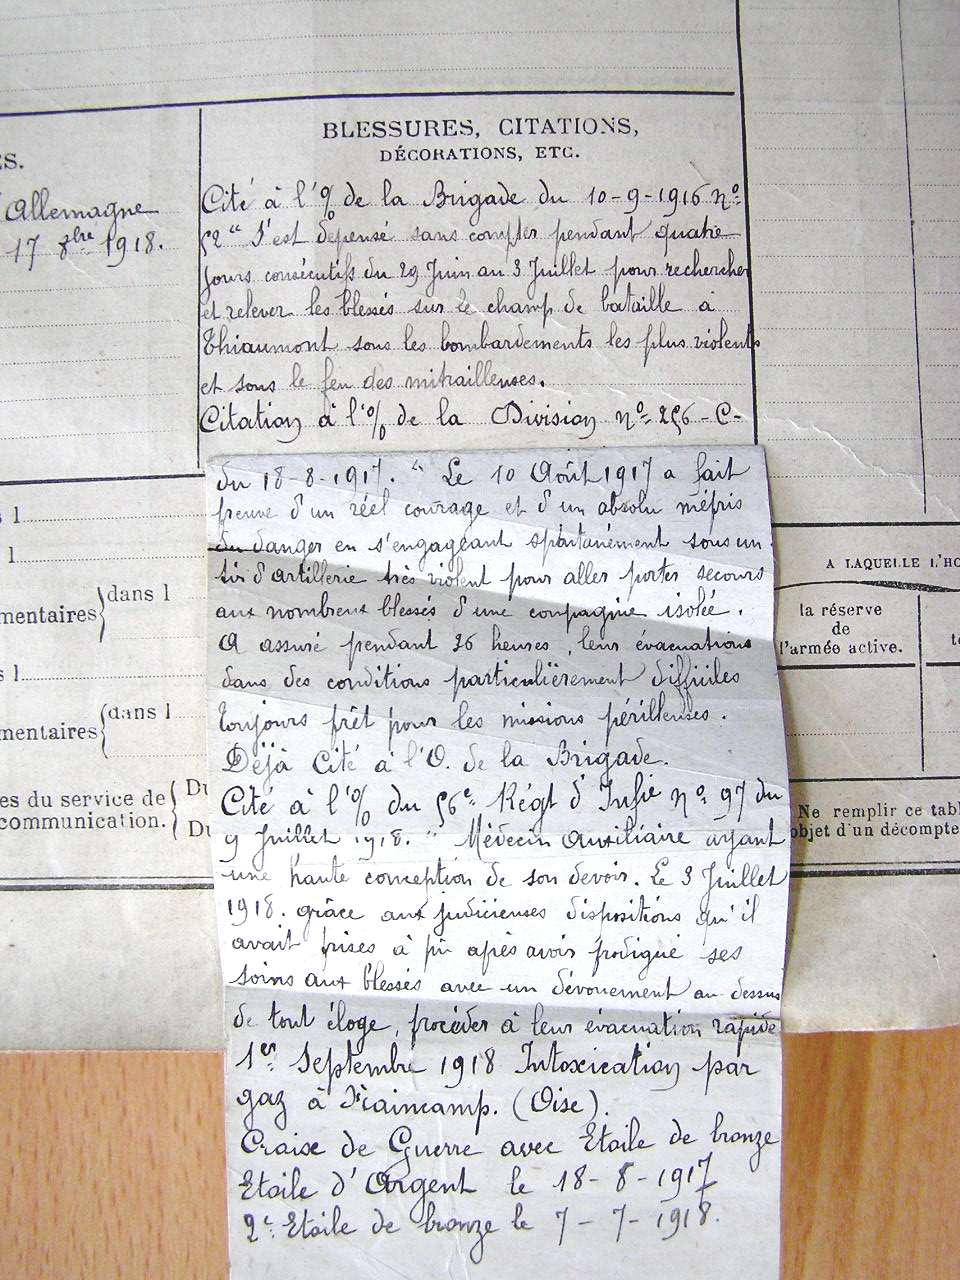 BLESSURES, CITATIONS,
DÉCORATIONS, ETC.
ES.
Allemagne
17 8bre 1918.
Cité à l'% de la Brigade du 10-9-1916 Nº
52 " S'est depensé sans compter pendant quatre
jours consécutifs du 29 Juin au 3 Juillet pour rechercher
et relever les blessés sur le champ de bataille à
Thiaumont sous les bombardements les plus violents
et sous le feu des mitrailleuses.
Citation à l'% de la Division Nº 256-C-
du 18-8-1917. " Le 10 Août 1917 a fait
preuve d'un réel courage et d'un absolu mépris
du danger en s'engageant spontanément sous un
tir d'artillerie très violent pour aller porter secours
aux nombreux blessés d'une compagnie isolée.
A assuré pendant 36 heures, leurs évacuations
dans des conditions particulièrement difficiles
toujours prêt pour les missions périlleuses.
Déjà Cité à l'O. de la Brigade.
Cité à l'% du 56e Régt d'Infie Nº 97 du
9 Juillet 1918. " Médecin Auxiliaire ayant
une haute conception de son devoir. Le 3 Juillet
1918. grâce aux judicieuses dispositions qu'il
avait prises à pu après avoir prodigué ses
soins aux blessés avec un dévouement au dessus
de tout éloge, procéder à leur évacuation rapide
1er Septembre 1918 Intoxication par
gaz à (Oise).
Croix de Guerre avec Etoile de bronze
Etoile d'Argent le 18-8-1917
2e Etoile de bronze le 7-7-1918.
s l
l
mentaires
dans l
s l
mentaires
dans l
es du service de
communication.
Du
Du
A LAQUELLE L'HO
la réserve
de
l'armée active.
Ne remplir ce tabl
objet d'un décompte